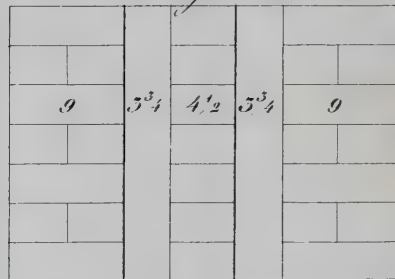 9 3¾ 4½ 3¾ 9